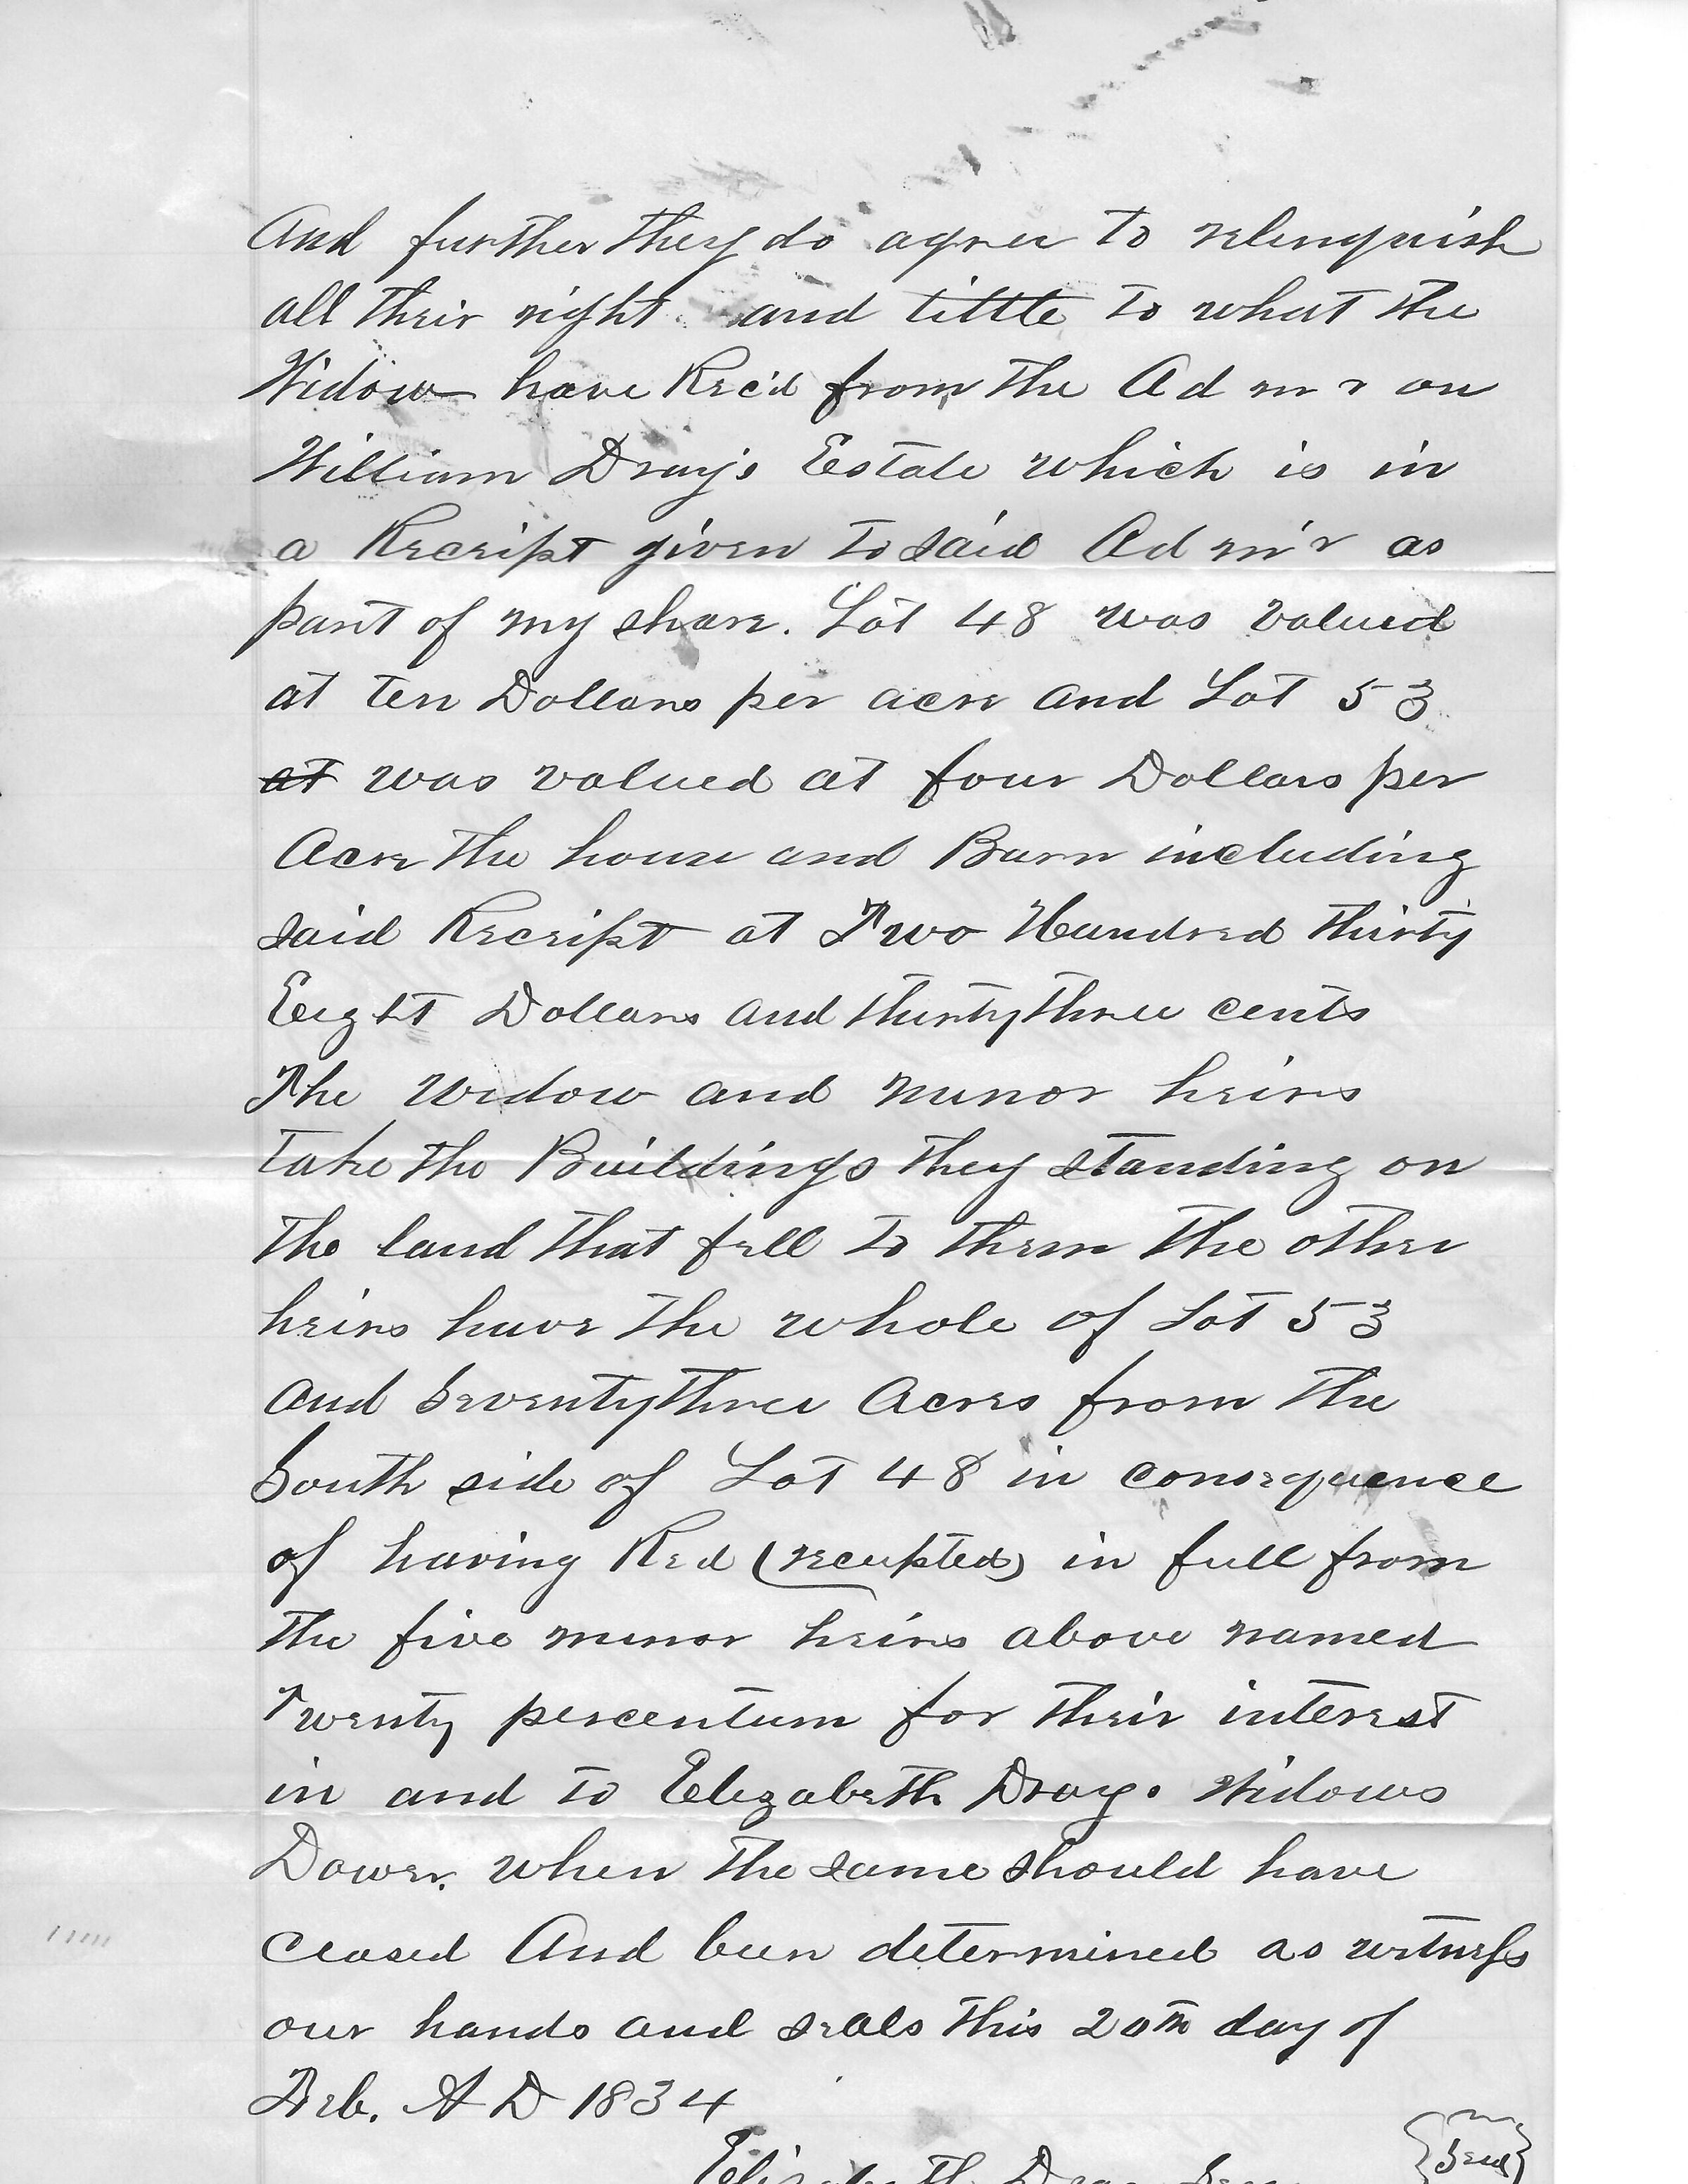 And further they do agree to relenquish
all their right and tittle to what the
Widow have Rec'd from the Ad m r on
William Dray's Estate which is in
a Receipt given to said Ad m'r as
part of my share. Lot 48 was valued
at ten Dollars per acre and Lot 53
at was valued at four Dollars per
Acre the house and Barn including
said Receipt at Two Hundred thirty
Eight Dollars and thirtythree cents
The Widow and minor heirs
take the Buildings they standing on
the land that fell to them the other
heirs have the whole of Lot 53
and Seventythree Acres from the
South side of Lot 48 in consequence
of having Red (recepted) in full from
the five minor heirs above named
Twenty percentum for their interest
in and to Elizabeth Drays Widows
Dower. when the same should have
ceased And been determined as witness
our hands and seals this 20th day of
Feb. A D 1834
Elizabeth Dray Sen {Seal}